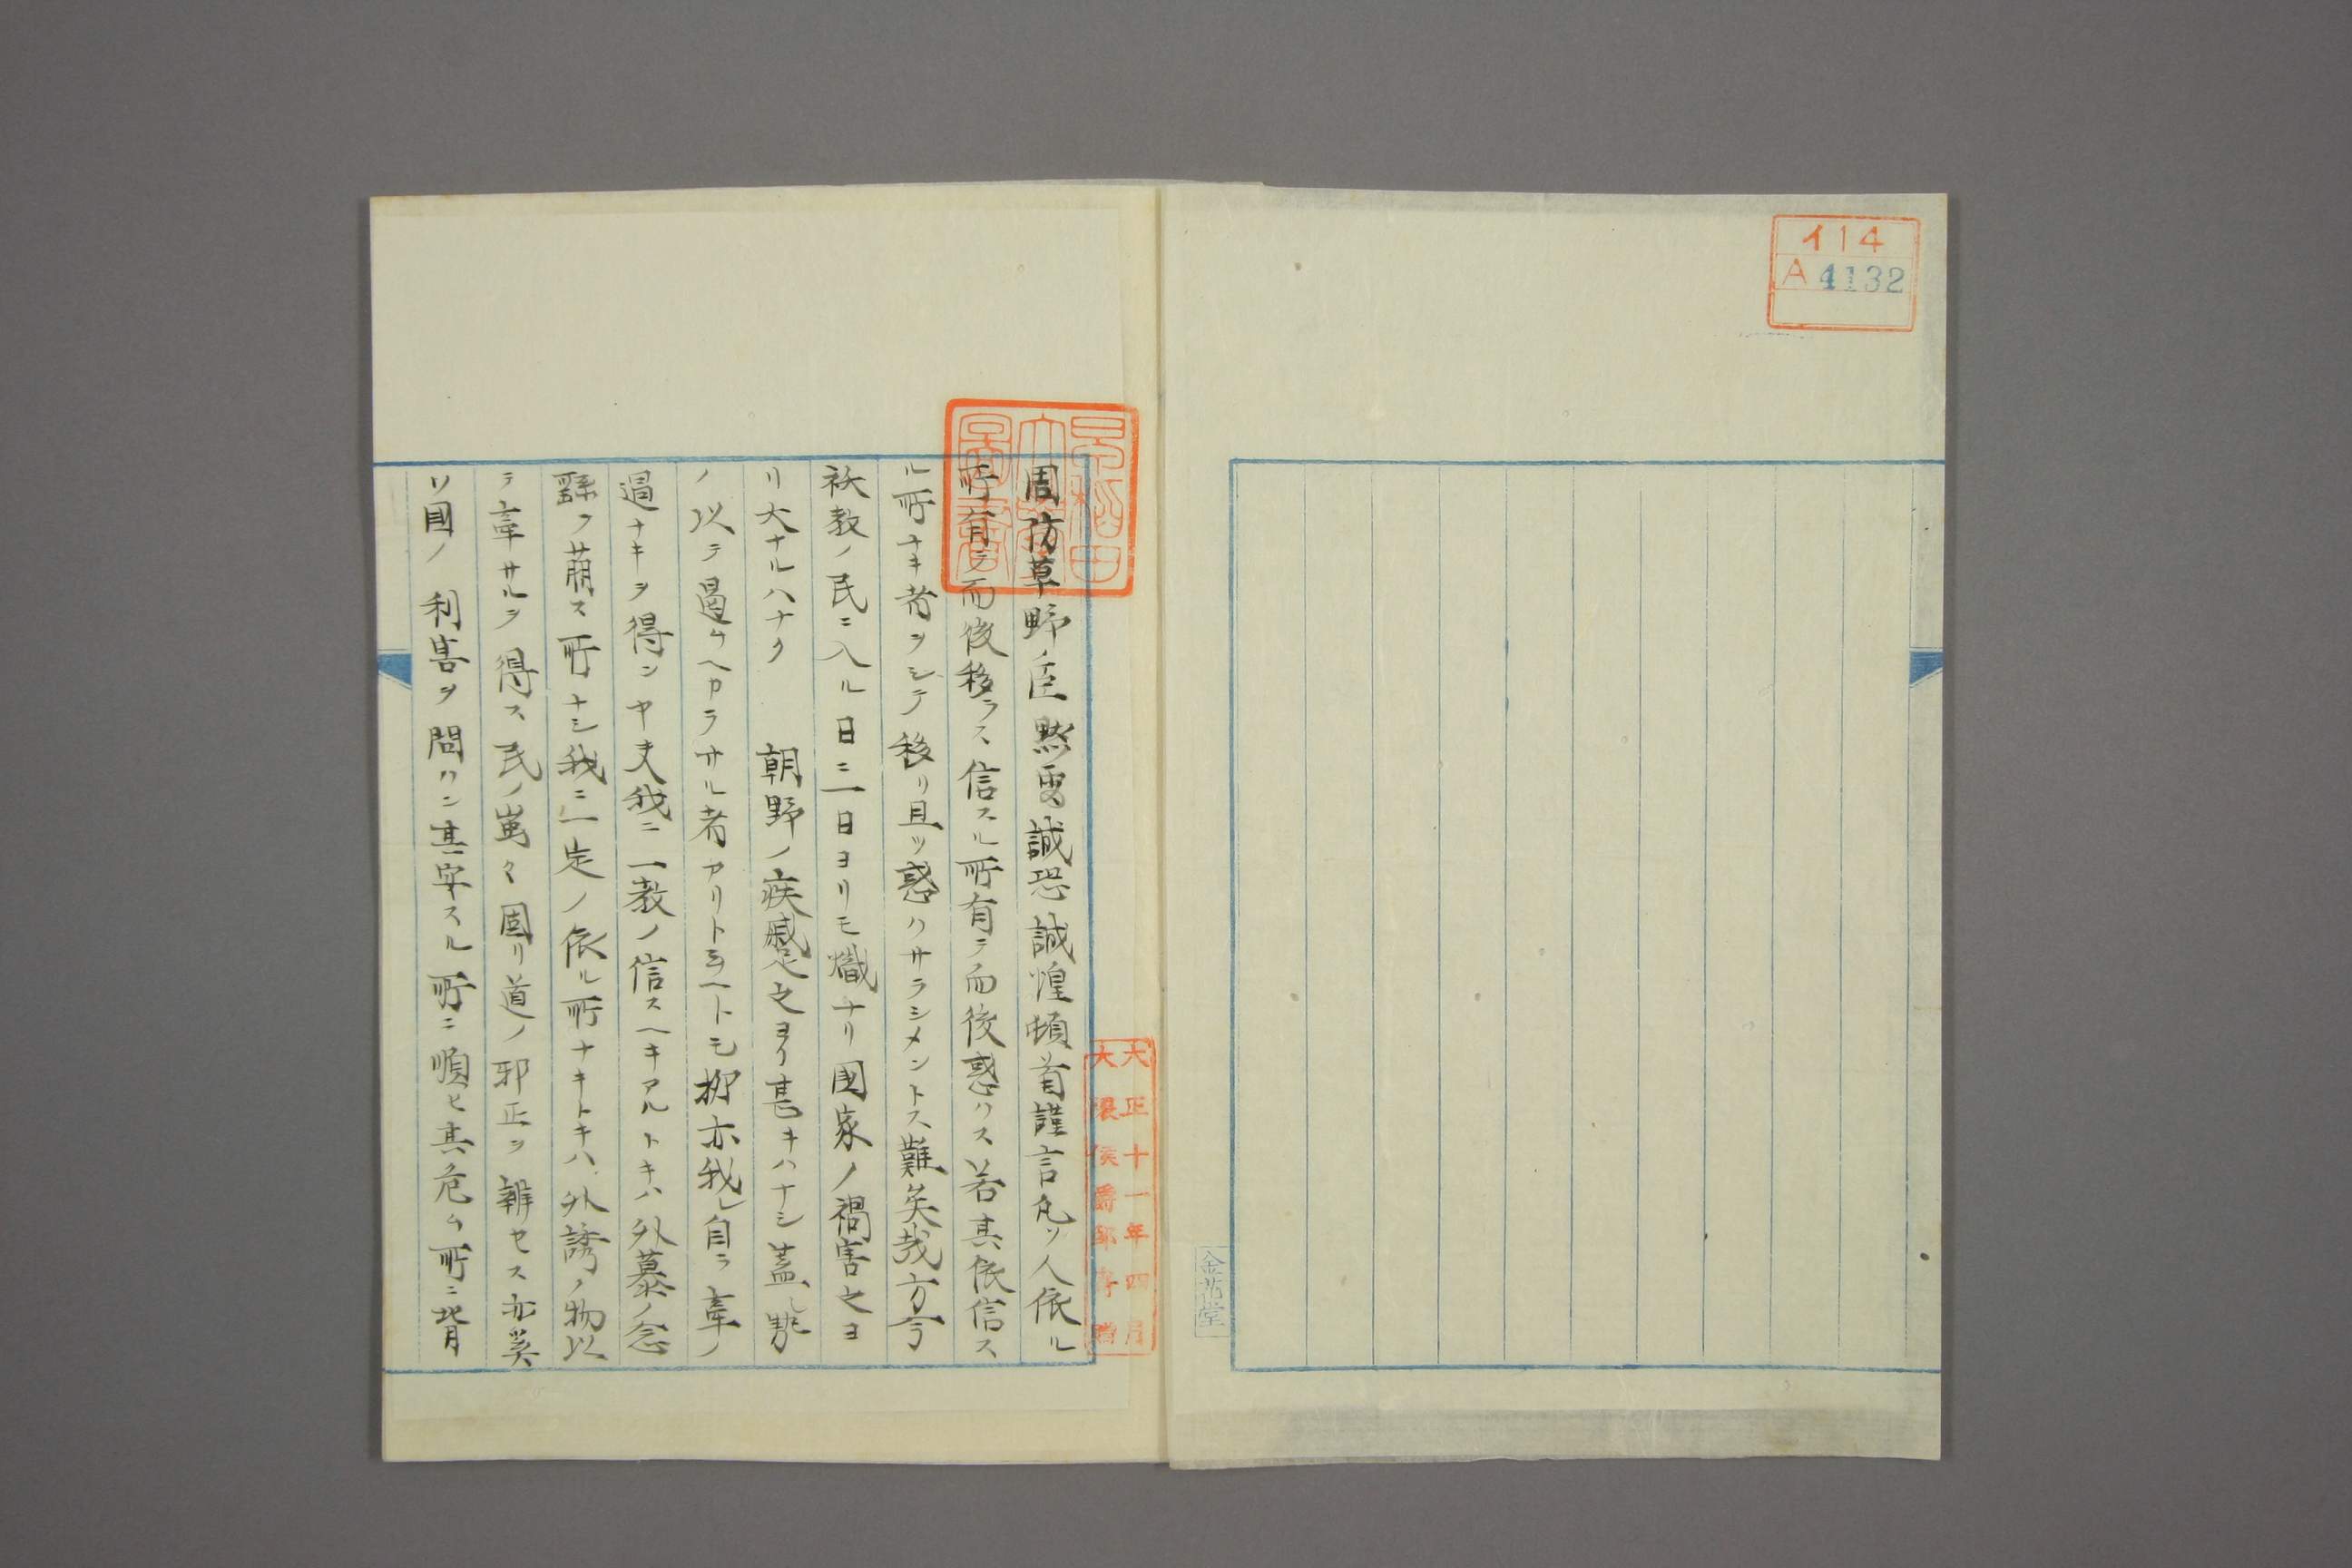 イ14
A 4132
金花堂
早稲田
大学
図書
大正十一年四月
大隈侯爵家寄贈
周防草野ノ臣黙雷誠恐誠惶頓首謹言凡ソ人依ル
所有テ而後移ラス信スル所有テ而後惑ハス若其依信ス
ル所ナキ者ヲシテ移リ且ツ惑ハサラシメントス難矣哉方今
祆教ノ民ニ入ル日ニ一日ヨリモ熾ナリ国家ノ禍害之ヨ
リ大ナルハナク 朝野ノ疾蹙之ヨリ甚キハナシ蓋シ勢
ノ以テ遏ムヘカラサル者アリト云ヘトモ抑亦我レ自ラ牽ノ
過ナキヲ得ンヤ夫我ニ一教ノ信スヘキアルトキハ外慕ノ念
繇フ萠ス所ナシ我ニ一定ノ依ル所ナキトキハ外誘ノ物以
テ牽サルヲ得ス民ノ蚩々固リ道ノ邪正ヲ辨セス亦奚
ソ国ノ利害ヲ問ハン其安スル所ニ順ヒ其危ム所ニ背